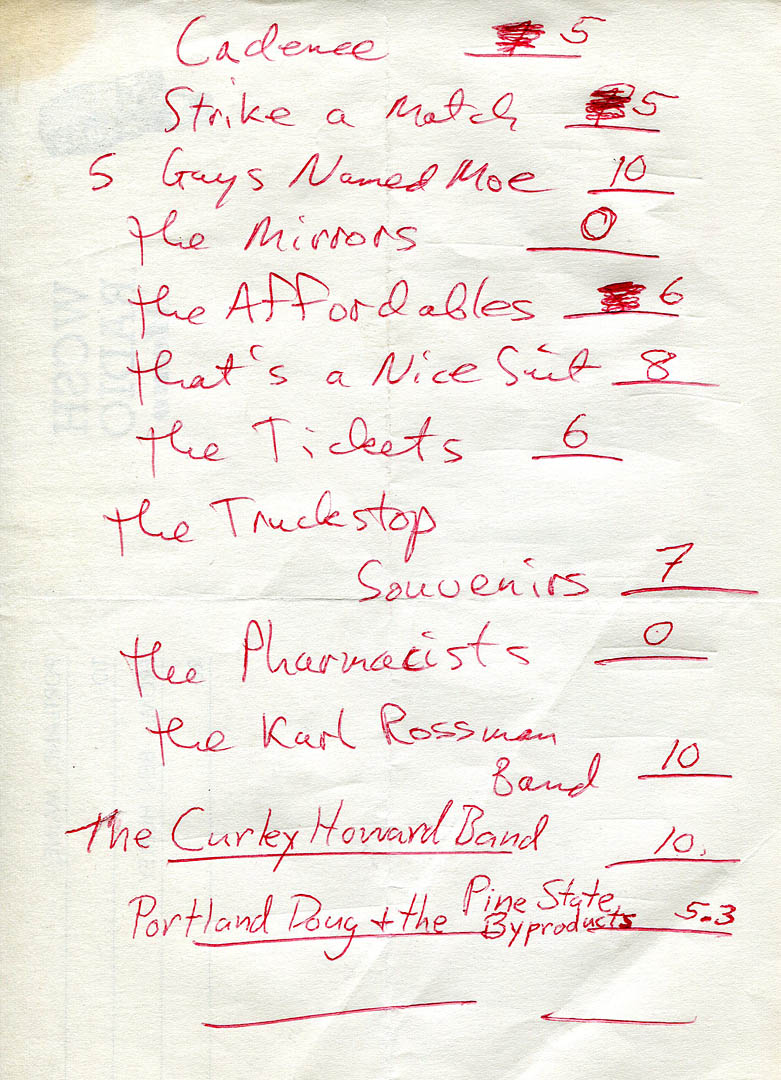 Cadence 5
Strike a Match 5
5 Guys Named Moe 10
the Mirrors 0
the Affordables 6
that's a Nice Suit 8
the Tickets 6
the Truckstop
Souvenirs 7
the Pharmacists 0
the Karl Rossman
Band 10
The Curley Howard Band 10.
Portland Doug + the Pine State
Byproducts 5.3